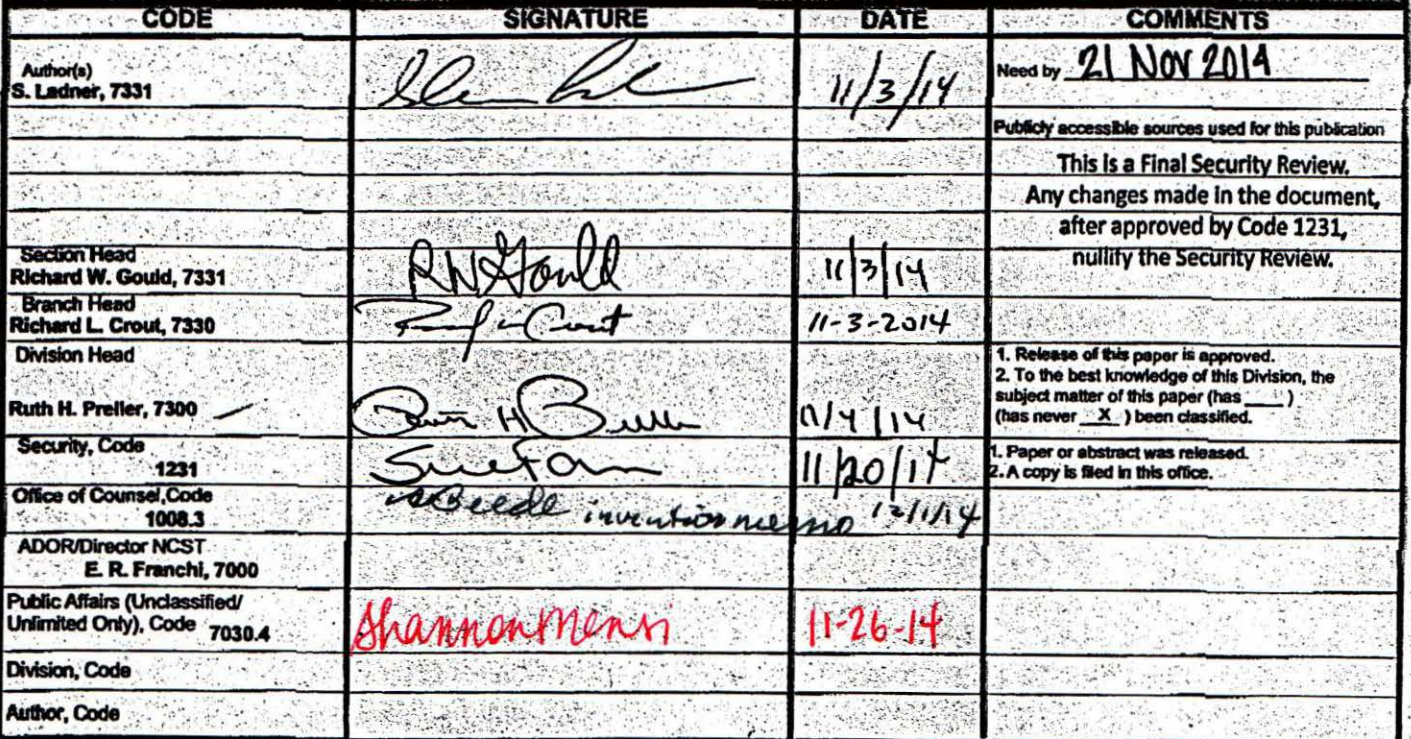 CODE SIGNATURE DATE COMMENTS
Author(s)
S. Ladner, 7331
11/3/14
Need by 21 Nov 2014
Publicly accessible sources used for this publication
This is a Final Security Review.
Any changes made in the document,
after approved by Code 1231,
nullify the Security Review.
Section Head
Richard W. Gould, 7331
RW Gould
11/3/14
Branch Head
Richard L. Crout, 7330
11-3-2014
Division Head
Ruth H. Preller, 7300
11/4/14
1. Release of this paper is approved.
2. To the best knowledge of this Division, the
subject matter of this paper (has ____ )
(has never X ) been classified.
Security, Code
1231
11/20/14
1. Paper or abstract was released.
2. A copy is filed in this office.
Office of Counsel,Code
1008.3
invention memo 12/1/14
ADOR/Director NCST
E. R. Franchi, 7000
Public Affairs (Unclassified/
Unlimited Only), Code 7030.4
Shannon Mensi
11-26-14
Division, Code
Author, Code